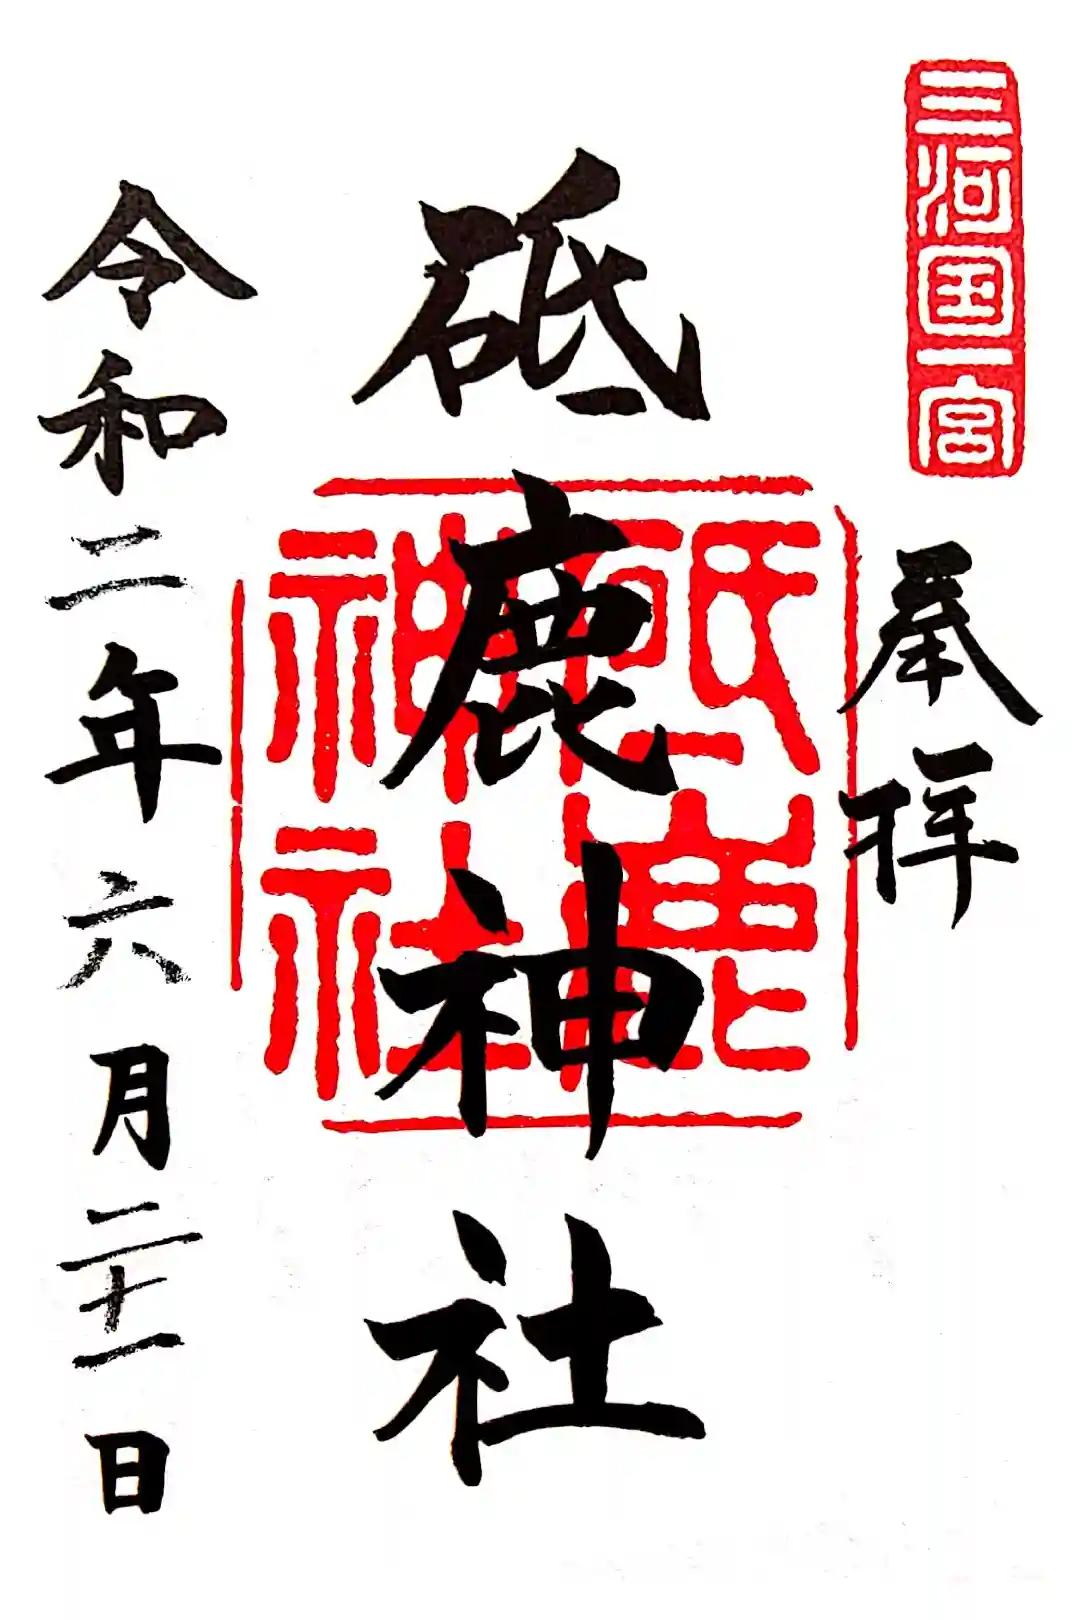 三河国一宮
奉拝
砥鹿神社
砥鹿
神社
令和二年六月二十一日